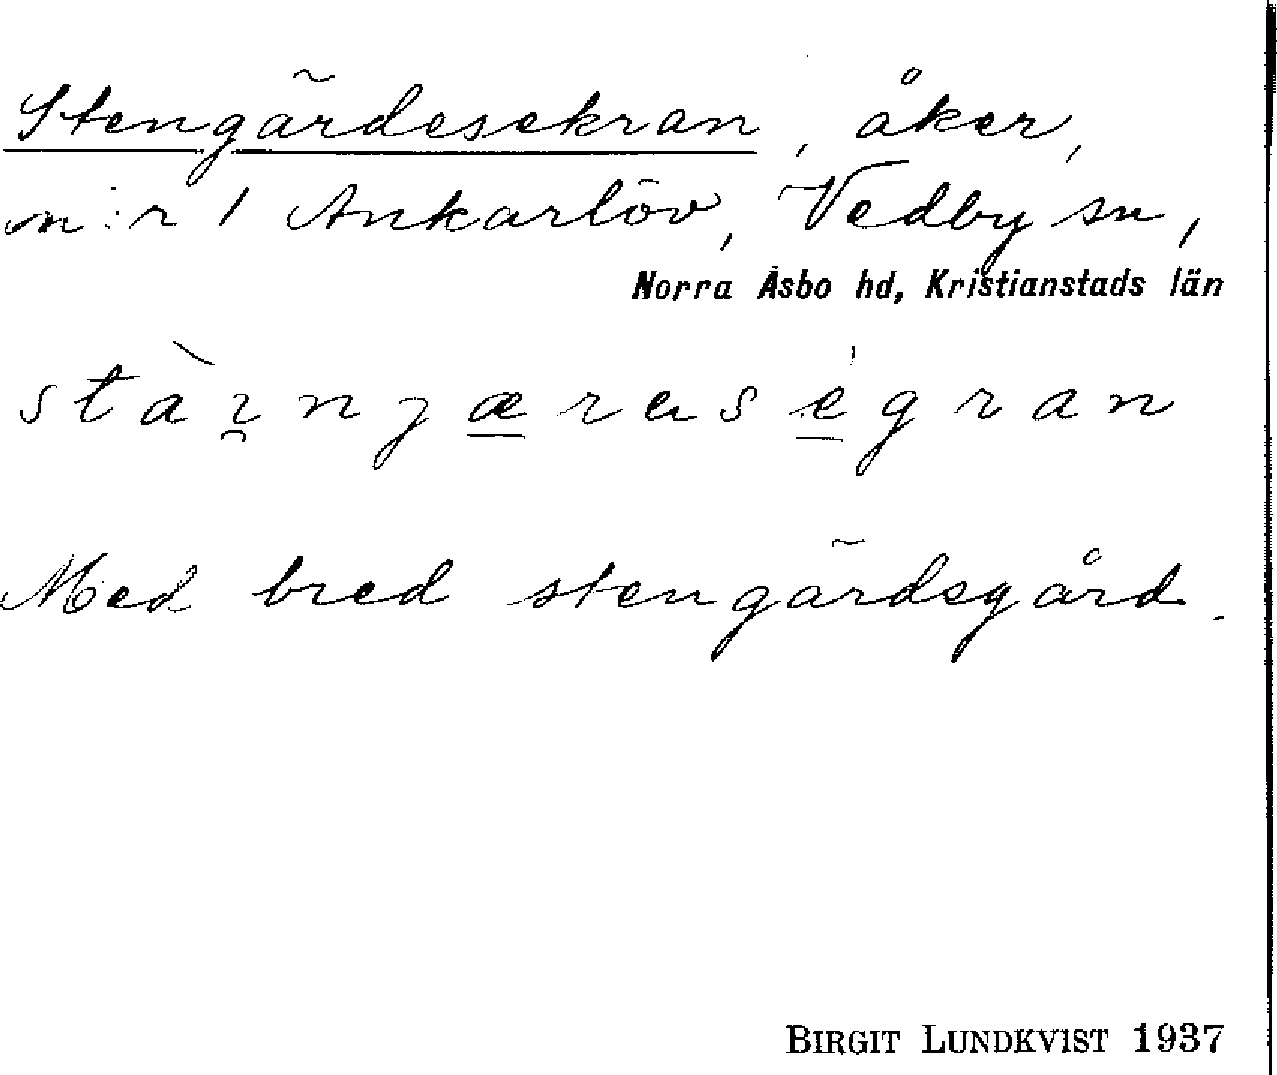 Stengärdesekran, åker,
n:r 1 Ankarlöv, Vedby sn,
Norra Åsbo hd, Kristianstads län
Med bred stengärdsgård.
BIRGIT LUNDKVIST 1937